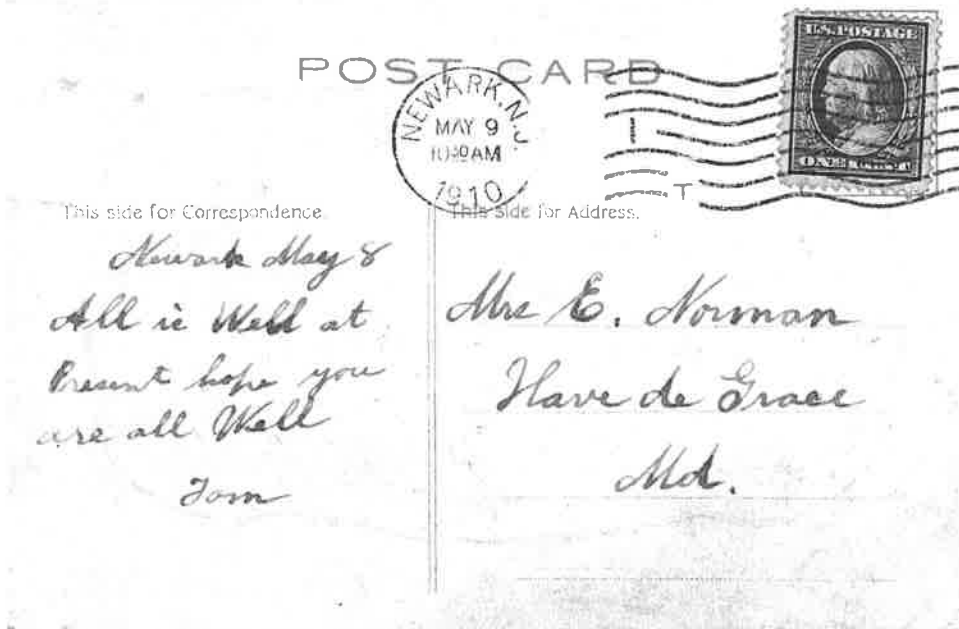 POST CARD
NEWARK, N.J.
MAY 9
10 30 AM
1910
U.S. POSTAGE
ONE
This side for Correspondence.
This Side for Address.
Newark May 8
All is Well at
Present hope you
are all Well
Tom
Mrs E. Norman
Have de Grace
Md.